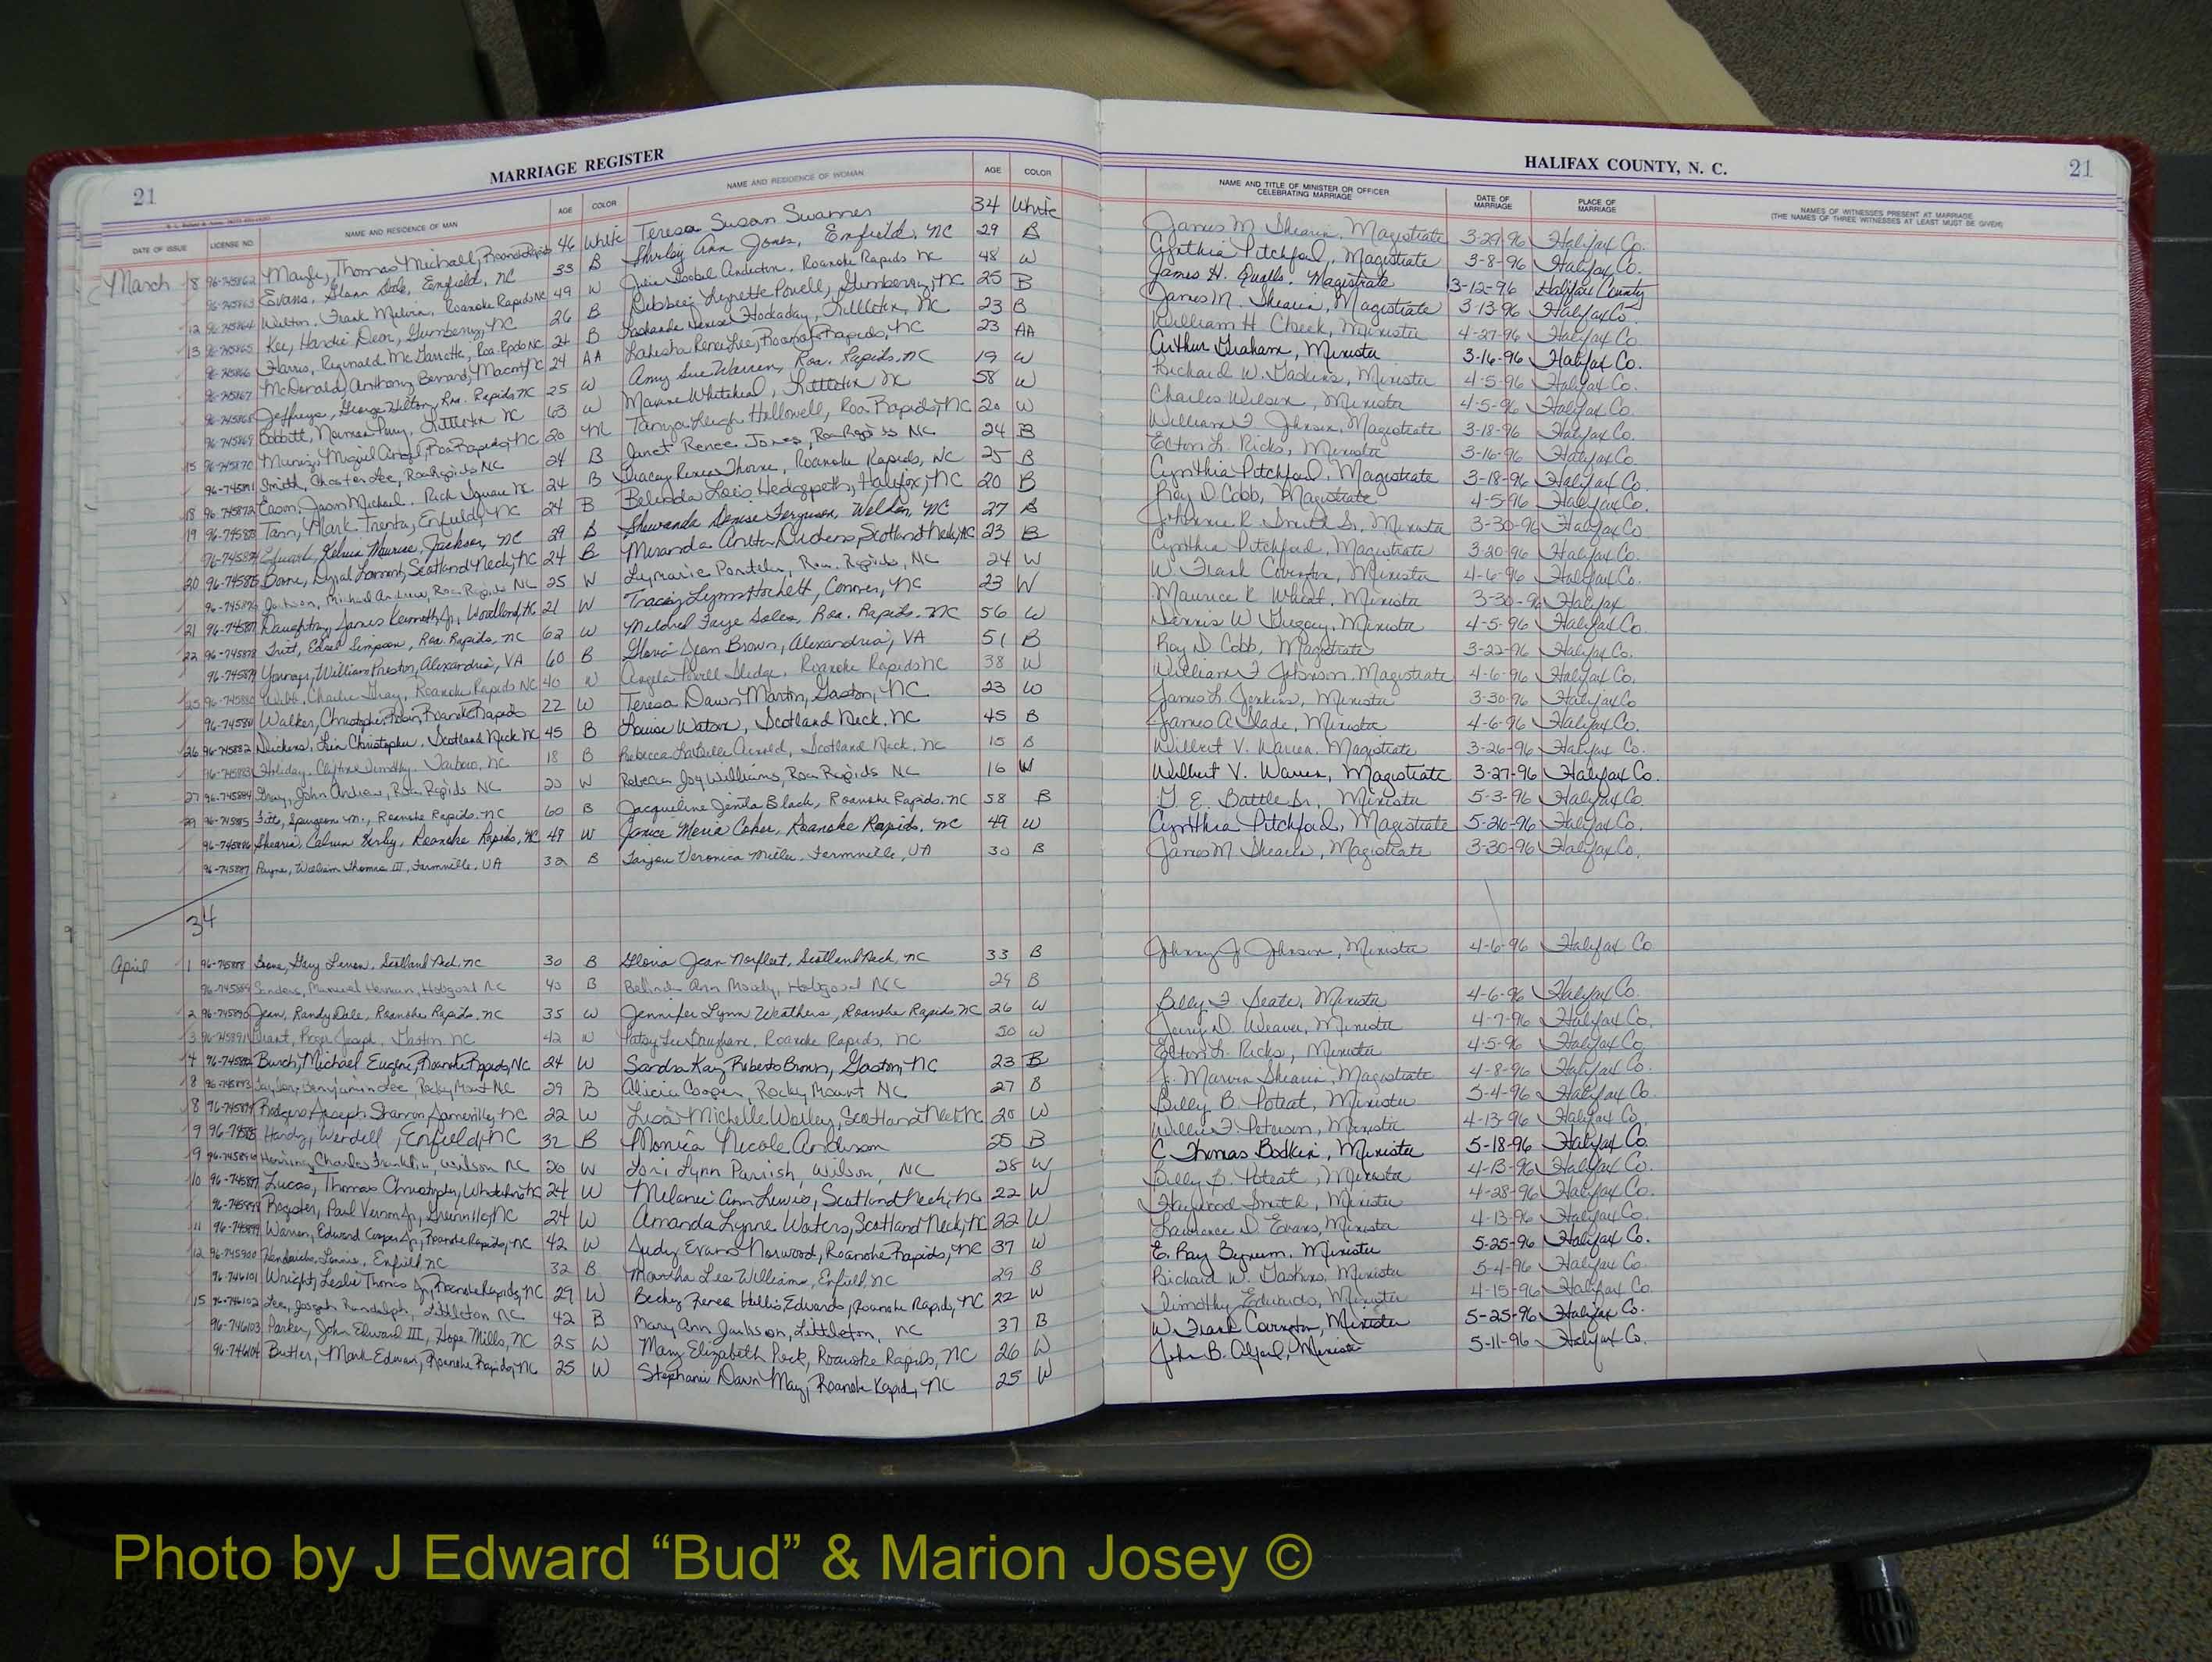 21
MARRIAGE REGISTER
HALIFAX COUNTY, N. C.
21
DATE OF ISSUE LICENSE NO. NAME AND RESIDENCE OF MAN AGE COLOR NAME AND RESIDENCE OF WOMAN AGE COLOR NAME AND TITLE OF MINISTER OR OFFICER CELEBRATING MARRIAGE DATE OF MARRIAGE PLACE OF MARRIAGE NAMES OF WITNESSES PRESENT AT MARRIAGE (THE NAMES OF THREE WITNESSES AT LEAST MUST BE GIVEN)
March 8 96-745862 Thomas Michael, Roanoke Rapids 46 White Teresa Susan 34 White James M. Shearin, Magistrate 3-29-96 Halifax Co.
96-745863 Evans, Enfield, NC 33 B Shirley Ann Jones, Enfield, NC 29 B Cynthia Pitchford, Magistrate 3-8-96 Halifax Co.
12 96-745864 Frank Melvin, Roanoke Rapids NC 49 W Roanoke Rapids NC 48 W James H. Qualls, Magistrate 3-12-96 Halifax County
13 96-745865 Kee, Hardie Dean, Gumberry, NC 26 B Lynette Powell, Gumberry, NC 25 B James M. Shearin, Magistrate 3-13-96 Halifax Co.
96-745866 Harris, Reginald Roa. Rpds NC 21 B Hockaday, Littleton, NC 23 B William H. Cheek, Minister 4-27-96 Halifax Co.
96-745867 McDonald, Anthony Bernard, Macon, NC 24 AA Lakesha Renee Lee, Roanoke Rapids, NC 23 AA Arthur Graham, Minister 3-16-96 Halifax Co.
96-745868 Jeffreys, George Hilton, Roa. Rapids NC 25 W Amy Sue Warren, Roa. Rapids, NC 19 W Richard W. Gaskins, Minister 4-5-96 Halifax Co.
96-745869 Bobbitt, Norman Littleton NC 63 W Maxine Whitehead, Littleton NC 58 W Charles Wilson, Minister 4-5-96 Halifax Co.
15 96-745870 Muniz, Miguel Angel, Roa Rapids, NC 20 Tanya Leigh Hallowell, Roa Rapids, NC 20 W William F. Johnson, Magistrate 3-18-96 Halifax Co.
96-745871 Smith, Chester Lee, Roa Rapids NC 24 B Janet Renee Jones, Roa Rapids NC 24 B Elton L. Ricks, Minister 3-16-96 Halifax Co.
18 96-745872 Eason, Jason Michael, Rich Square NC 24 B Tracey Renee Thorne, Roanoke Rapids, NC 25 B Cynthia Pitchford, Magistrate 3-18-96 Halifax Co.
19 96-745873 Tann, Mark Trenta, Enfield, NC 24 B Belinda Lois Hedgepeth, Halifax, NC 20 B Roy D. Cobb, Magistrate 4-5-96 Halifax Co.
96-745874 Kelvin Maurice, Jackson, NC 29 B Shewanda Denise Ferguson, Weldon, NC 27 B Johnnie R. Smith Sr., Minister 3-30-96 Halifax Co
20 96-745875 Lamont, Scotland Neck, NC 24 B Miranda Anita Dickens, Scotland Neck, NC 23 B Cynthia Pitchford, Magistrate 3-20-96 Halifax Co.
96-745876 Jackson, Michael Andrew, Roa Rapids NC 25 W Roa. Rapids, NC 24 W W. Frank Covington, Minister 4-6-96 Halifax Co.
21 96-745877 Daughtry, James Kenneth Jr., Woodland, NC 21 W Tracey Lynn Hockett, Conover, NC 23 W Maurice K. Wheat, Minister 3-30-96 Halifax
22 96-745878 Edsel Simpson, Roa. Rapids, NC 62 W Mildred Faye Sales, Roa. Rapids, NC 56 W Dennis W. Gregory, Minister 4-5-96 Halifax Co.
96-745879 William Preston, Alexandria, VA 60 B Gloria Jean Brown, Alexandria, VA 51 B Roy D. Cobb, Magistrate 3-22-96 Halifax Co.
25 96-745880 Webb, Charlie Gray, Roanoke Rapids NC 40 W Angela Powell Sledge, Roanoke Rapids NC 38 W William F. Johnson, Magistrate 4-6-96 Halifax Co.
96-745881 Walker, Christopher Roanoke Rapids 22 W Teresa Dawn Martin, Gaston, NC 23 W James L. Jenkins, Minister 3-30-96 Halifax Co.
26 96-745882 Dickens, Christopher, Scotland Neck NC 45 B Louise Watson, Scotland Neck, NC 45 B James A. Slade, Minister 4-6-96 Halifax Co.
96-745883 Holiday, Timothy, Tarboro, NC 18 B Rebecca LaBelle Arnold, Scotland Neck, NC 15 B Wilbert V. Warren, Magistrate 3-26-96 Halifax Co.
27 96-745884 Gray, John Andrew, Roa Rapids NC 20 W Rebecca Joy Williams, Roa Rapids NC 16 W Wilbert V. Warren, Magistrate 3-27-96 Halifax Co.
29 96-745885 Fitts, Spurgeon M., Roanoke Rapids, NC 60 B Jacqueline Black, Roanoke Rapids, NC 58 B G. E. Battle Sr., Minister 5-3-96 Halifax Co.
96-745886 Shearin, Calvin Kerly, Roanoke Rapids, NC 49 W Janice Maria Coker, Roanoke Rapids, NC 49 W Cynthia Pitchford, Magistrate 5-26-96 Halifax Co.
96-745887 Payne, William Thomas III, Farmville, VA 32 B Veronica Miller, Farmville, VA 30 B James M. Shearin, Magistrate 3-30-96 Halifax Co.
34
April 1 96-745888 Boone, Gary Lemon, Scotland Neck, NC 30 B Gloria Jean Norfleet, Scotland Neck, NC 33 B Johnny J. Johnson, Minister 4-6-96 Halifax Co
96-745889 Sanders, Manuel Herman, Hobgood NC 40 B Belinda Ann Moody, Hobgood NC 29 B Billy F. Seate, Minister 4-6-96 Halifax Co.
2 96-745890 Jean, Randy Dale, Roanoke Rapids, NC 35 W Jennifer Lynn Weathers, Roanoke Rapids NC 26 W Jerry D. Weaver, Minister 4-7-96 Halifax Co.
3 96-745891 Grant, Roger Joseph, Gaston NC 42 W Patsy Lee Baughan, Roanoke Rapids, NC 50 W Elton L. Ricks, Minister 4-5-96 Halifax Co.
4 96-745892 Burch, Michael Eugene, Roanoke Rapids, NC 24 W Sandra Kay Roberts Brown, Gaston, NC 23 B J. Marvin Shearin, Magistrate 4-8-96 Halifax Co.
8 96-745893 Taylor, Benjamin Lee, Rocky Mount NC 29 B Alicia Cooper, Rocky Mount NC 27 B Billy B. Poteat, Minister 5-4-96 Halifax Co.
8 96-745894 Rodgers, Joseph Shannon, NC 22 W Lesa Michelle Scotland Neck, NC 20 W Willie F. Peterson, Minister 4-13-96 Halifax Co
9 96-745895 Hardy, Wendell, Enfield, NC 32 B Monica Nicole Anderson 25 B C. Thomas Bodkin, Minister 5-18-96 Halifax Co.
9 96-745896 Charles Franklin, Wilson NC 20 W Lori Lynn Parrish, Wilson, NC 28 W Billy B. Poteat, Minister 4-13-96 Halifax Co.
10 96-745897 Lucas, Thomas Christopher, NC 24 W Melanie Ann Lewis, Scotland Neck, NC 22 W Haywood Smith, Minister 4-28-96 Halifax Co.
96-745898 Register, Paul Vernon Jr., Greenville, NC 24 W Amanda Lynne Waters, Scotland Neck, NC 22 W Lawrence D. Evans, Minister 4-13-96 Halifax Co.
11 96-745899 Warren, Edward Cooper Jr., Roanoke Rapids, NC 42 W Judy Evans Norwood, Roanoke Rapids, NC 37 W E. Ray Bynum, Minister 5-25-96 Halifax Co.
12 96-745900 Hendricks, Lonnie, Enfield, NC 32 B Martha Lee Williams, Enfield, NC 29 B Richard W. Gaskins, Minister 5-4-96 Halifax Co
96-746101 Wright, Leslie Thomas Jr., Roanoke Rapids, NC 29 W Becky Hollis Edwards, Roanoke Rapids, NC 22 W Timothy Edwards, Minister 4-15-96 Halifax Co.
15 96-746102 Lee, Joseph Randolph, Littleton NC 42 B Mary Ann Jackson, Littleton, NC 37 B W. Frank Covington, Minister 5-25-96 Halifax Co.
96-746103 Parker, John Edward III, Hope Mills, NC 25 W Mary Elizabeth Peck, Roanoke Rapids, NC 26 W John B. Minister 5-11-96 Halifax Co.
96-746104 Butler, Mark Edwin, Roanoke Rapids, NC 25 W Stephanie Dawn May, Roanoke Rapids, NC 25 W
Photo by J Edward “Bud” & Marion Josey ©